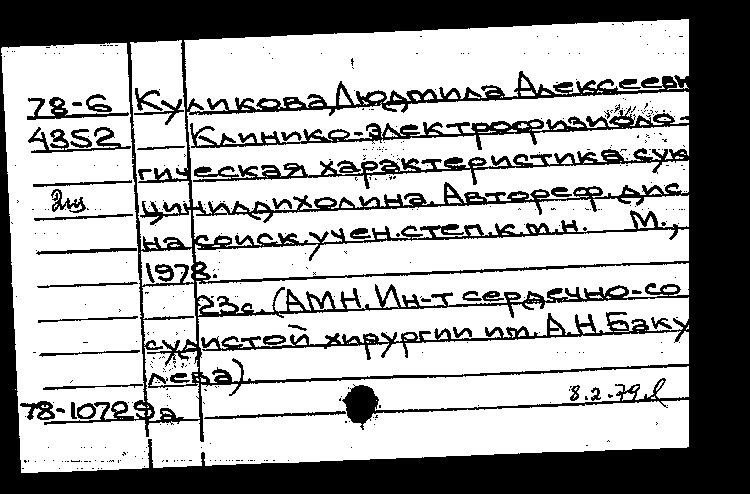 78-6 Куликова, Людмила Алексеевн
4352 Клинико-электрофизиоло-
гическая характеристика сук
2щ цинилдихолина. Автореф. дис.
на соиск. учен. степ. к.м.н. М.,
1978.
23с. (АМН. Ин-т сердечно-со
судистой хирургии им. А.Н. Баку
лева).
78-10729а 8.2.79